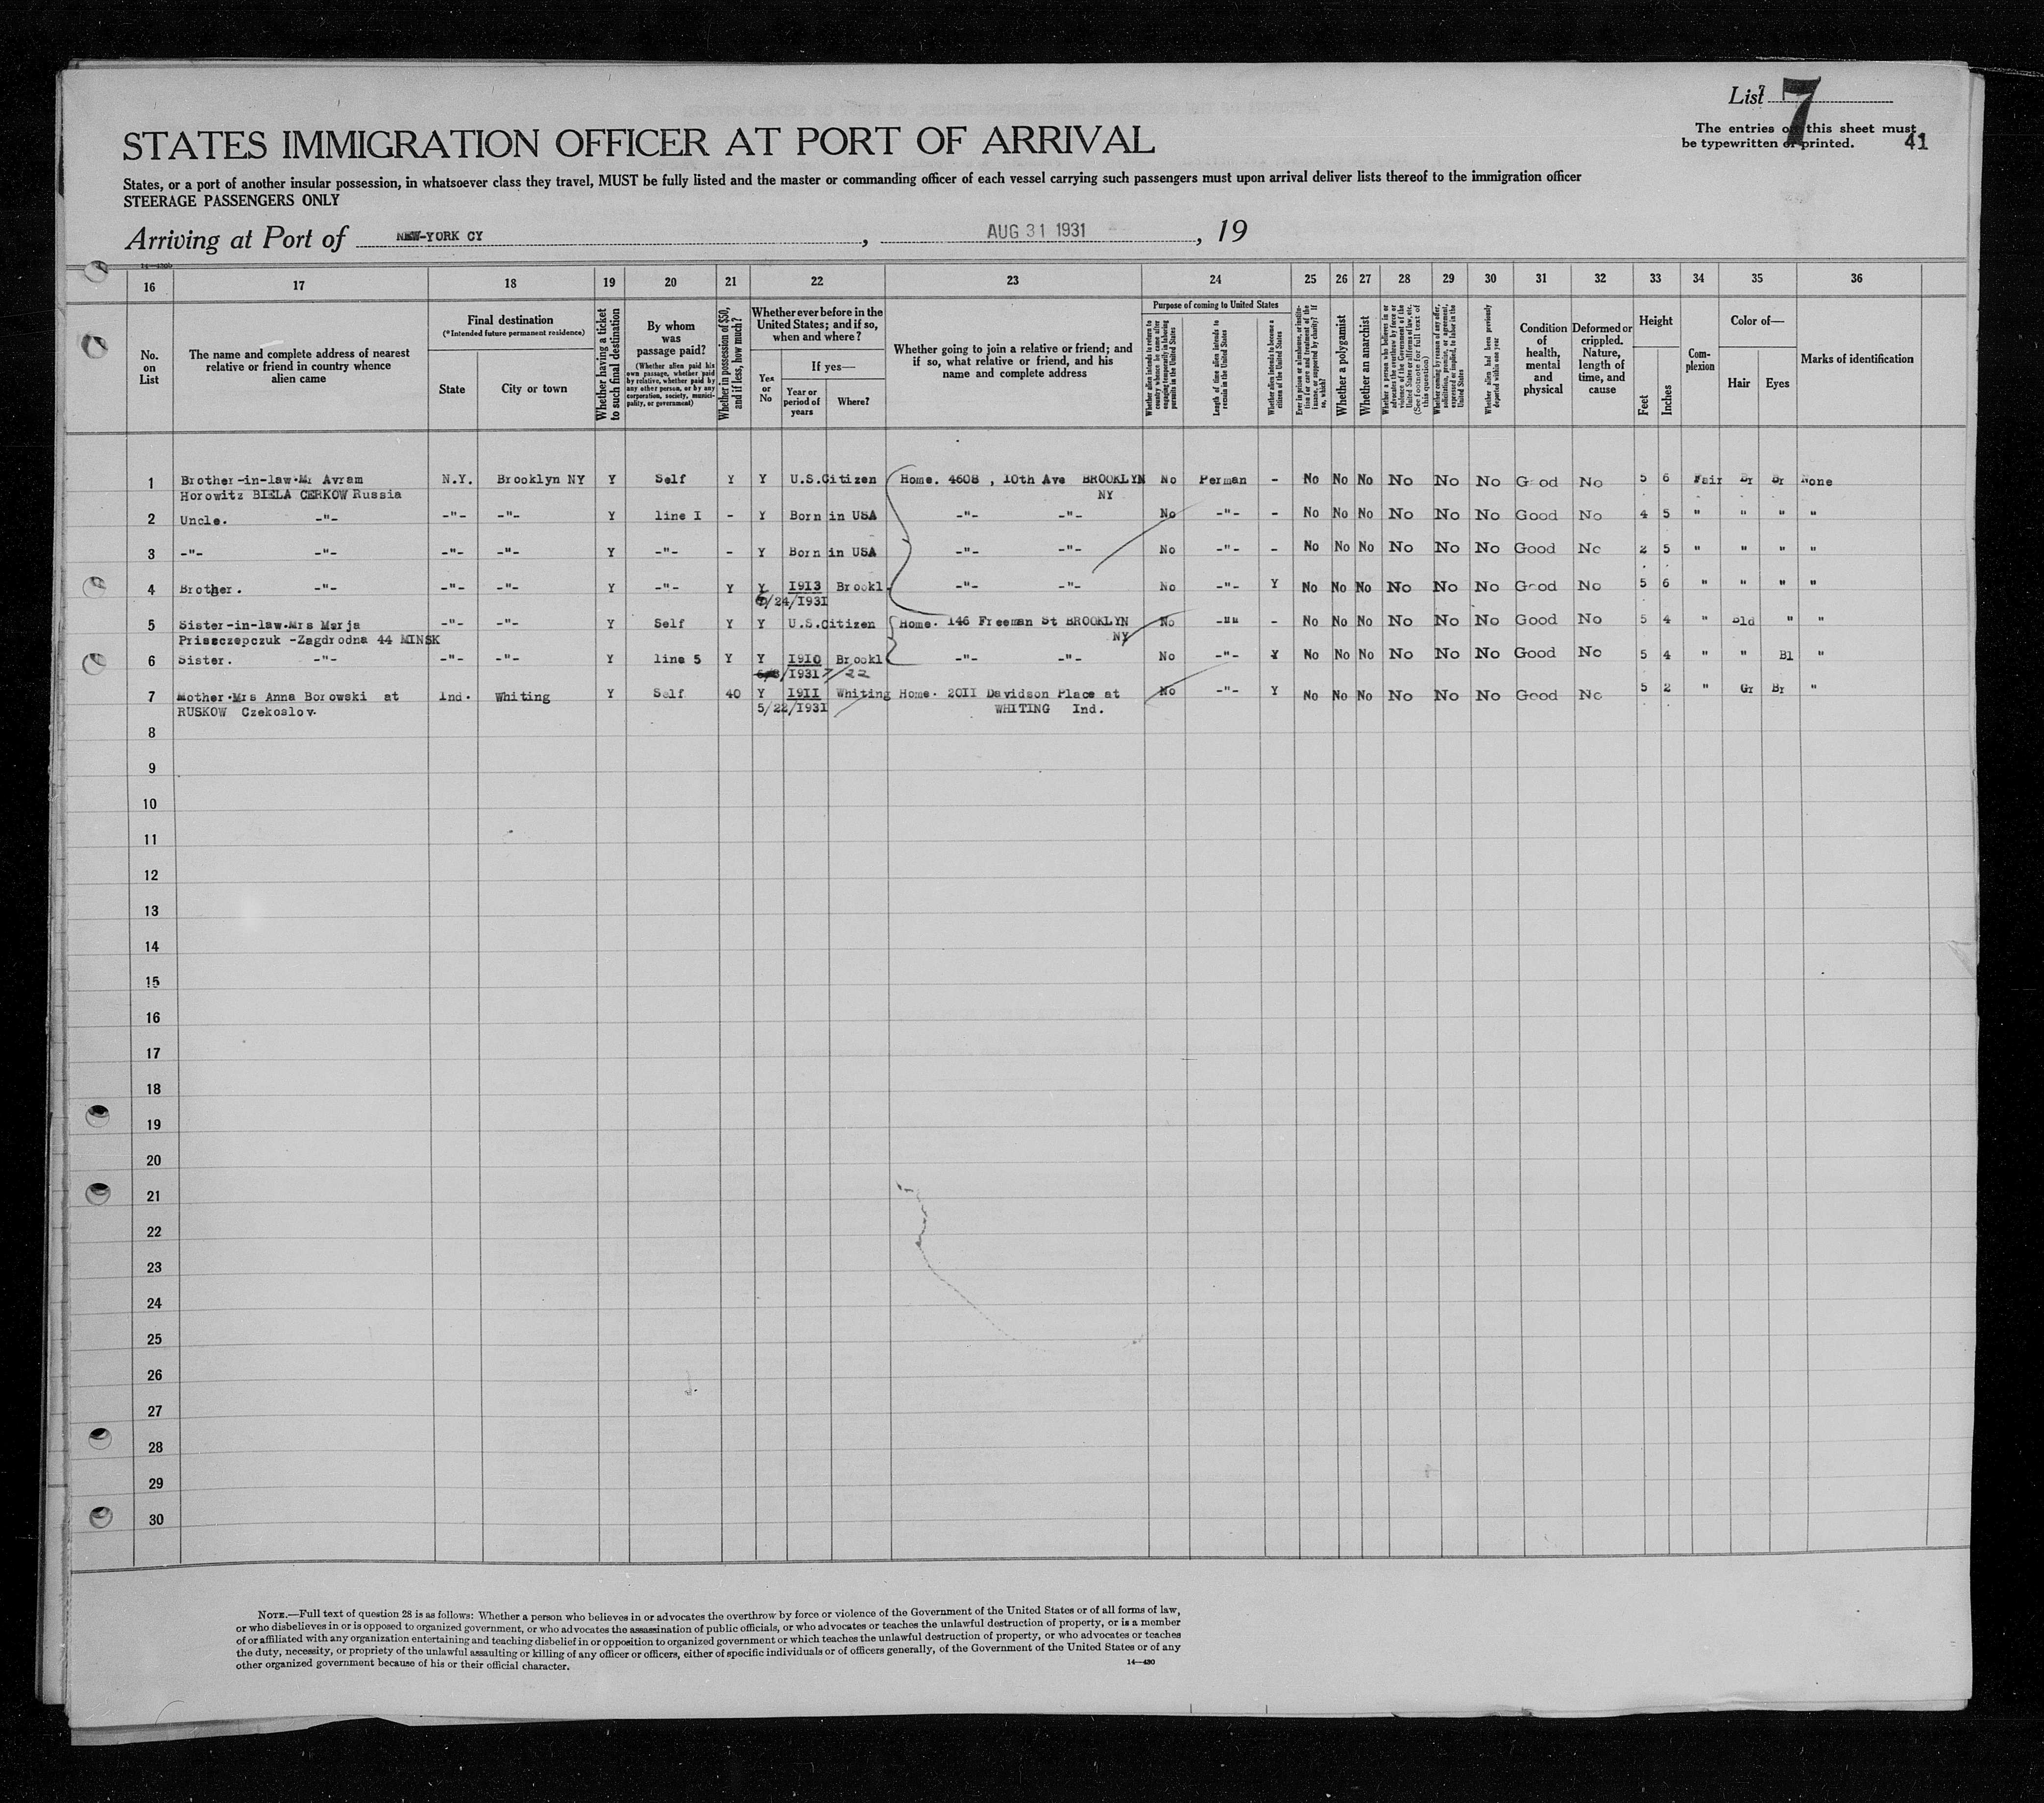 List 7
The entries on this sheet must
be typewritten or printed.
41
STATES IMMIGRATION OFFICER AT PORT OF ARRIVAL
States, or a port of another insular possession, in whatsoever class they travel, MUST be fully listed and the master or commanding officer of each vessel carrying such passengers must upon arrival deliver lists thereof to the immigration officer
STEERAGE PASSENGERS ONLY
Arriving at Port of NEW-YORK CY , AUG 31 1931 , 19
16 17 18 19 20 21 22 23 24 25 26 27 28 29 30 31 32 33 34 35 36
No. on List
The name and complete address of nearest
relative or friend in country whence
alien came
Final destination
(*Intended future permanent residence)
State
City or town
Whether having a ticket
to such final destination
By whom
was
passage paid?
(Whether alien paid his
own passage, whether paid
by relative, whether paid by
any other person, or by any
corporation, society, munici-
pality, or government)
Whether in possession of $50,
and if less, how much?
Whether ever before in the
United States; and if so,
when and where?
Yes
or
No
If yes—
Year or
period of
years
Where?
Whether going to join a relative or friend; and
if so, what relative or friend, and his
name and complete address
Purpose of coming to United States
Whether alien intends to return to
country whence he came after
engaging temporarily in laboring
pursuits in the United States
Length of time alien intends to
remain in the United States
Whether alien intends to become a
citizen of the United States
Ever in prison or almshouse, or institu-
tion for care and treatment of the
insane, or supported by charity? If
so, which?
Whether a polygamist
Whether an anarchist
Whether a person who believes in or
advocates the overthrow by force or
violence of the Government of the
United States or all forms of law, etc.
(See footnote for full text of
this question)
Whether coming by reason of any offer,
solicitation, promise, or agreement,
expressed or implied, to labor in the
United States
Whether alien had been previously
deported within one year
Condition
of
health,
mental
and
physical
Deformed or
crippled.
Nature,
length of
time, and
cause
Height
Feet
Inches
Com-
plexion
Color of—
Hair
Eyes
Marks of identification
1 Brother-in-law.Mr Avram N.Y. Brooklyn NY Y Self Y Y U.S.Citizen Home. 4608 , 10th Ave BROOKLYN No Perman - No No No No No No Good No 5 6 Fair Br Br None
Horowitz BIELA CERKOW Russia NY
2 Uncle. -"- -"- -"- Y line I - Y Born in USA -"- -"- No -"- - No No No No No No Good No 4 5 " " " "
3 -"- -"- -"- -"- Y -"- - Y Born in USA -"- -"- No -"- - No No No No No No Good No 2 5 " " " "
4 Brother. -"- -"- -"- Y -"- Y Y 1913 Brookl. -"- -"- No -"- Y No No No No No No Good No 5 6 " " " "
6/24/1931
5 Sister-in-law.Mrs Marja -"- -"- Y Self Y Y U.S.Citizen Home. 146 Freeman St BROOKLYN No -""- - No No No No No No Good No 5 4 " Bld " "
Prisszczepczuk -Zagdrodna 44 MINSK NY
6 Sister. -"- -"- -"- Y line 5 Y Y 1910 Brookl -"- -"- No -"- Y No No No No No No Good No 5 4 " " Bl "
/1931 7/22
7 Mother.Mrs Anna Borowski at Ind. Whiting Y Self 40 Y 1911 Whiting Home. 2011 Davidson Place at No -"- Y No No No No No No Good No 5 2 " Gr Br "
RUSKOW Czekoslov. 5/22/1931 WHITING Ind.
8
9
10
11
12
13
14
15
16
17
18
19
20
21
22
23
24
25
26
27
28
29
30
NOTE.—Full text of question 28 is as follows: Whether a person who believes in or advocates the overthrow by force or violence of the Government of the United States or of all forms of law,
or who disbelieves in or is opposed to organized government, or who advocates the assassination of public officials, or who advocates or teaches the unlawful destruction of property, or is a member
of or affiliated with any organization entertaining and teaching disbelief in or opposition to organized government or which teaches the unlawful destruction of property, or who advocates or teaches
the duty, necessity, or propriety of the unlawful assaulting or killing of any officer or officers, either of specific individuals or of officers generally, of the Government of the United States or of any
other organized government because of his or their official character.
14—430